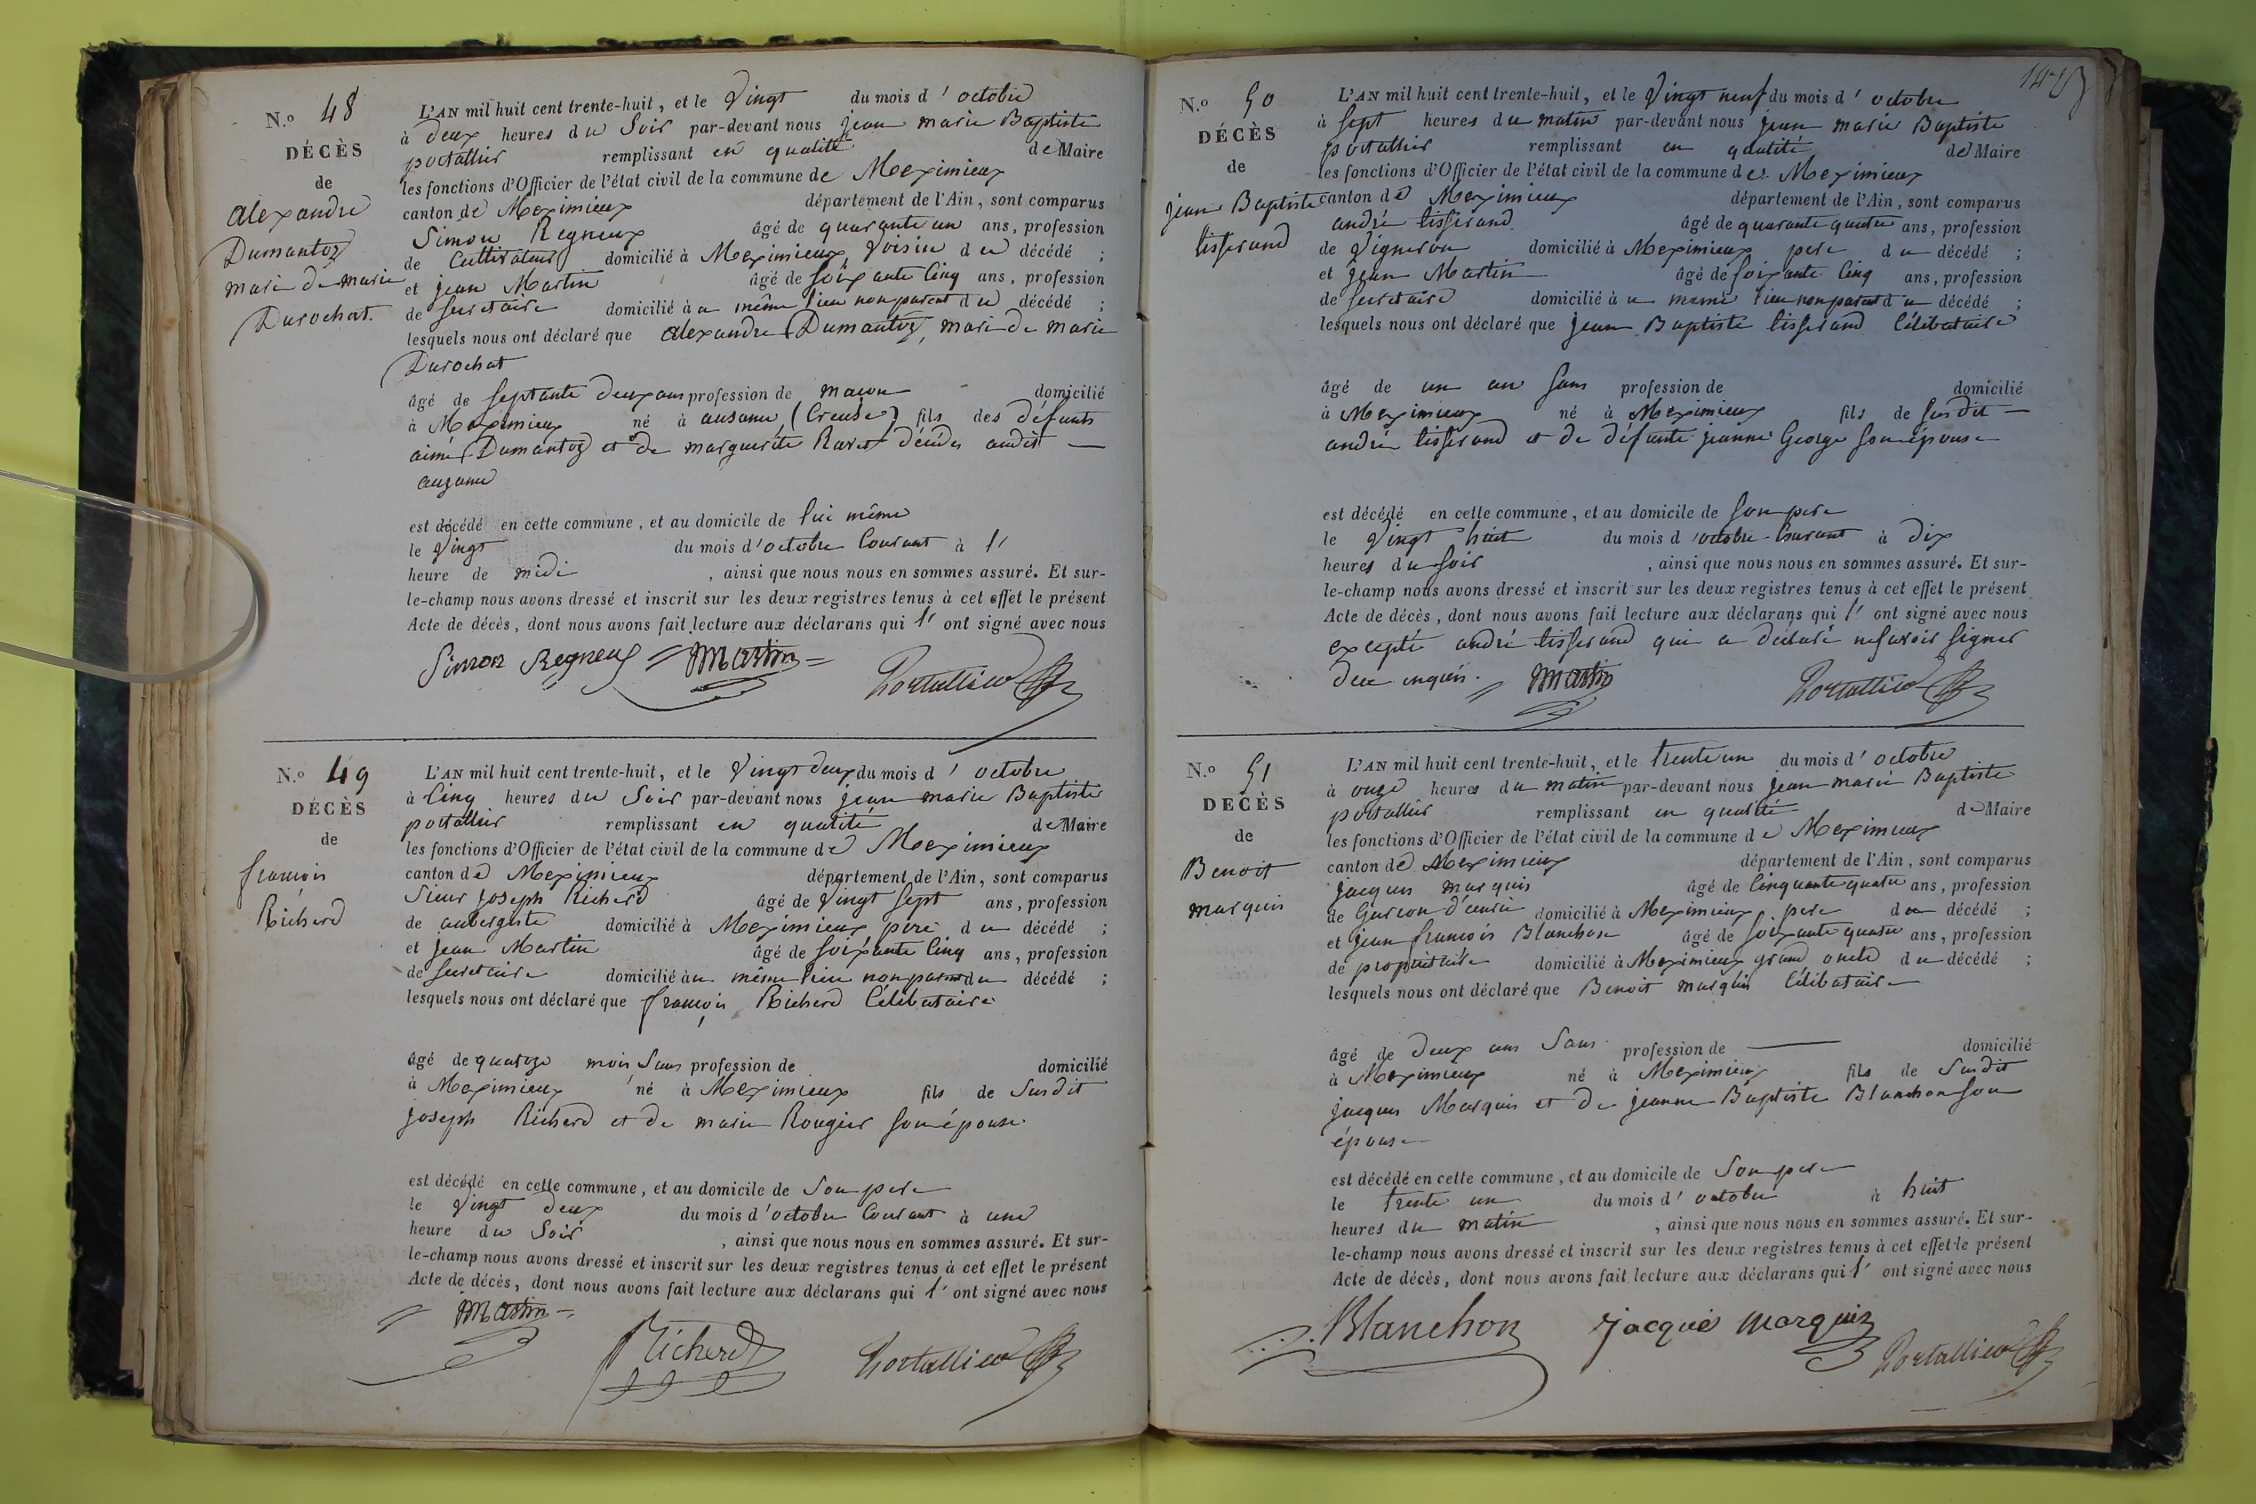 N.° 48
DÉCÈS
de
alexandre
Dumantoz
mari de marie
Durochat.
L'AN mil huit cent trente-huit, et le Vingt du mois d' octobre
à deux heures du Soir par-devant nous jean marie Baptiste
portallier remplissant en qualité de Maire
les fonctions d'Officier de l'état civil de la commune de Meximieux
canton de Meximieux département de l'Ain, sont comparus
Simon Regneux âgé de quarante un ans, profession
de Cultivateur domicilié à Meximieux, Voisin du décédé ;
et jean Martin âgé de soixante Cinq ans, profession
de secretaire domicilié à u même lieu non parent du décédé ;
lesquels nous ont déclaré que alexandre Dumantoz, mari de marie
Durochat
âgé de septante deux ans profession de macon domicilié
à Meximieux né à ausanne (Creuse) fils des défunts
aimé Dumantoz et de marguerite Ravet décédés audit
auzanne
est décédé en cette commune, et au domicile de lui même
le Vingt du mois d'octobre Courant à l'
heure de midi , ainsi que nous nous en sommes assuré. Et sur-
le-champ nous avons dressé et inscrit sur les deux registres tenus à cet effet le présent
Acte de décès, dont nous avons fait lecture aux déclarans qui l' ont signé avec nous
Simon Regneux Martin Portallier
N.° 49
DÉCÈS
de
françois
Richerd
L'AN mil huit cent trente-huit, et le Vingt deux du mois d' octobre
à Cinq heures du Soir par-devant nous jean marie Baptiste
portallier remplissant en qualité de Maire
les fonctions d'Officier de l'état civil de la commune de Meximieux
canton de Meximieux département de l'Ain, sont comparus
Sieur joseph Richerd âgé de Vingt sept ans, profession
de aubergiste domicilié à Meximieux père du décédé ;
et jean Martin âgé de soixante Cinq ans, profession
de secretaire domicilié à u même lieu non parent du décédé ;
lesquels nous ont déclaré que françois Richerd Célibataire
âgé de quatorze mois sans profession de domicilié
à Meximieux né à Meximieux fils de Susdit
joseph Richerd et de marie Rougier son épouse.
est décédé en cette commune, et au domicile de son pere
le Vingt deux du mois d'octobre Courant à une
heure du Soir , ainsi que nous nous en sommes assuré. Et sur-
le-champ nous avons dressé et inscrit sur les deux registres tenus à cet effet le présent
Acte de décès, dont nous avons fait lecture aux déclarans qui l' ont signé avec nous
Martin Richerd Portallier
N.° 50
DÉCÈS
de
jean Baptiste
tisserand
L'AN mil huit cent trente-huit, et le Vingt neuf du mois d' octobre
à sept heures du matin par-devant nous jean marie Baptiste
portallier remplissant en qualité de Maire
les fonctions d'Officier de l'état civil de la commune de Meximieux
canton de Meximieux département de l'Ain, sont comparus
andré tisserand âgé de quarante quatre ans, profession
de Vigneron domicilié à Meximieux pere du décédé ;
et jean Martin âgé de soixante Cinq ans, profession
de secretaire domicilié à u meme lieu non parent du décédé ;
lesquels nous ont déclaré que jean Baptiste tisserand Célibataire
âgé de un an sans profession de domicilié
à Meximieux né à Meximieux fils de susdit
andré tisserand et de défunte jeanne George son épouse
est décédé en cette commune, et au domicile de son pere
le Vingt huit du mois d'octobre Courant à dix
heures du soir , ainsi que nous nous en sommes assuré. Et sur-
le-champ nous avons dressé et inscrit sur les deux registres tenus à cet effet le présent
Acte de décès, dont nous avons fait lecture aux déclarans qui l' ont signé avec nous
excepté andré tisserand qui a déclaré ne savoir signer
de ce enquis. Martin Portallier
N.° 51
DÉCÈS
de
Benoit
marquis
L'AN mil huit cent trente-huit, et le trente un du mois d' octobre
à onze heures du matin par-devant nous jean marie Baptiste
portallier remplissant en qualité de Maire
les fonctions d'Officier de l'état civil de la commune de Meximieux
canton de Meximieux département de l'Ain, sont comparus
jacques marquis âgé de Cinquante quatre ans, profession
de Garcon d'écurie domicilié à Meximieux, pere du décédé ;
et jean françois Blanchon âgé de soixante quatre ans, profession
de proprietaire domicilié à Meximieux grand oncle du décédé ;
lesquels nous ont déclaré que Benoit marquis Célibataire
âgé de deux ans Sans profession de domicilié
à Meximieux né à Meximieux fils de Susdit
jacques Marquis et de jeanne Baptiste Blanchon son
épouse
est décédé en cette commune, et au domicile de Son pere
le trente un du mois d' octobre à huit
heures du matin , ainsi que nous nous en sommes assuré. Et sur-
le-champ nous avons dressé et inscrit sur les deux registres tenus à cet effet le présent
Acte de décès, dont nous avons fait lecture aux déclarans qui l' ont signé avec nous
Blanchon jacque marquis Portallier